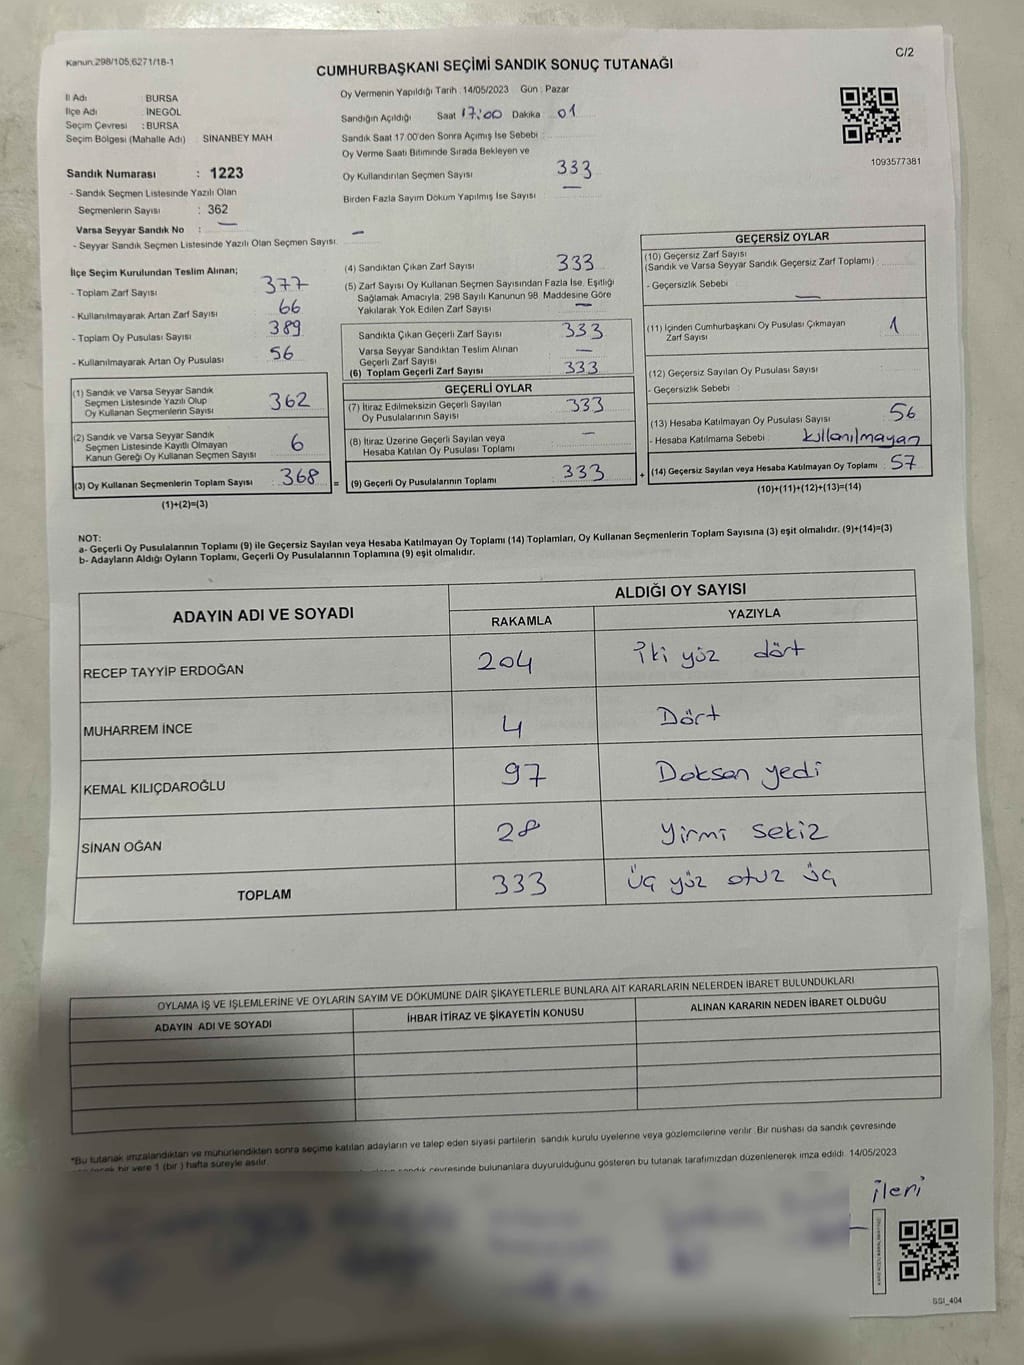 Kanun.298/105,6271/18-1
C/2
CUMHURBAŞKANI SEÇİMİ SANDIK SONUÇ TUTANAĞI
İl Adı BURSA
İlçe Adı İNEGÖL
Seçim Çevresi : BURSA
Seçim Bölgesi (Mahalle Adı) SİNANBEY MAH
Sandık Numarası : 1223
- Sandık Seçmen Listesinde Yazılı Olan
Seçmenlerin Sayısı : 362
Varsa Seyyar Sandık No : —
- Seyyar Sandık Seçmen Listesinde Yazılı Olan Seçmen Sayısı —
Oy Vermenin Yapıldığı Tarih : 14/05/2023 Gün : Pazar
Sandığın Açıldığı Saat 17:00 Dakika 01
Sandık Saat 17.00'den Sonra Açımış İse Sebebi :
Oy Verme Saati Bitiminde Sırada Bekleyen ve
Oy Kullandırılan Seçmen Sayısı 333
Birden Fazla Sayım Döküm Yapılmış İse Sayısı —
1093577381
İlçe Seçim Kurulundan Teslim Alınan;
- Toplam Zarf Sayısı 377
- Kullanılmayarak Artan Zarf Sayısı 66
- Toplam Oy Pusulası Sayısı 389
- Kullanılmayarak Artan Oy Pusulası 56
(1) Sandık ve Varsa Seyyar Sandık
Seçmen Listesinde Yazılı Olup
Oy Kullanan Seçmenlerin Sayısı 362
(2) Sandık ve Varsa Seyyar Sandık
Seçmen Listesinde Kayıtlı Olmayan
Kanun Gereği Oy Kullanan Seçmen Sayısı 6
(3) Oy Kullanan Seçmenlerin Toplam Sayısı 368 =
(1)+(2)=(3)
(4) Sandıktan Çıkan Zarf Sayısı 333
(5) Zarf Sayısı Oy Kullanan Seçmen Sayısından Fazla İse, Eşitliği
Sağlamak Amacıyla, 298 Sayılı Kanunun 98. Maddesine Göre
Yakılarak Yok Edilen Zarf Sayısı —
Sandıkta Çıkan Geçerli Zarf Sayısı 333
Varsa Seyyar Sandıktan Teslim Alınan
Geçerli Zarf Sayısı —
(6) Toplam Geçerli Zarf Sayısı 333
GEÇERLİ OYLAR
(7) İtiraz Edilmeksizin Geçerli Sayılan
Oy Pusulalarının Sayısı 333
(8) İtiraz Üzerine Geçerli Sayılan veya
Hesaba Katılan Oy Pusulası Toplamı —
(9) Geçerli Oy Pusulalarının Toplamı 333 +
GEÇERSİZ OYLAR
(10) Geçersiz Zarf Sayısı
(Sandık ve Varsa Seyyar Sandık Geçersiz Zarf Toplamı) :
- Geçersizlik Sebebi —
(11) İçinden Cumhurbaşkanı Oy Pusulası Çıkmayan
Zarf Sayısı 1
(12) Geçersiz Sayılan Oy Pusulası Sayısı
- Geçersizlik Sebebi :
(13) Hesaba Katılmayan Oy Pusulası Sayısı 56
- Hesaba Katılmama Sebebi kullanılmayan
(14) Geçersiz Sayılan veya Hesaba Katılmayan Oy Toplamı : 57
(10)+(11)+(12)+(13)=(14)
NOT:
a- Geçerli Oy Pusulalarının Toplamı (9) ile Geçersiz Sayılan veya Hesaba Katılmayan Oy Toplamı (14) Toplamları, Oy Kullanan Seçmenlerin Toplam Sayısına (3) eşit olmalıdır. (9)+(14)=(3)
b- Adayların Aldığı Oyların Toplamı, Geçerli Oy Pusulalarının Toplamına (9) eşit olmalıdır.
ADAYIN ADI VE SOYADI
ALDIĞI OY SAYISI
RAKAMLA YAZIYLA
RECEP TAYYİP ERDOĞAN 204 iki yüz dört
MUHARREM İNCE 4 Dört
KEMAL KILIÇDAROĞLU 97 Doksan yedi
SİNAN OĞAN 28 Yirmi sekiz
TOPLAM 333 üç yüz otuz üç
OYLAMA İŞ VE İŞLEMLERİNE VE OYLARIN SAYIM VE DÖKÜMÜNE DAİR ŞİKAYETLERLE BUNLARA AİT KARARLARIN NELERDEN İBARET BULUNDUKLARI
ADAYIN ADI VE SOYADI İHBAR İTİRAZ VE ŞİKAYETİN KONUSU ALINAN KARARIN NEDEN İBARET OLDUĞU
*Bu tutanak imzalandıktan ve mühürlendikten sonra seçime katılan adayların ve talep eden siyasi partilerin sandık kurulu üyelerine veya gözlemcilerine verilir. Bir nüshası da sandık çevresinde
bir yere 1 (bir) hafta süreyle asılır.
sandık çevresinde bulunanlara duyurulduğunu gösteren bu tutanak tarafımızdan düzenlenerek imza edildi. 14/05/2023
ileri
SSI_404